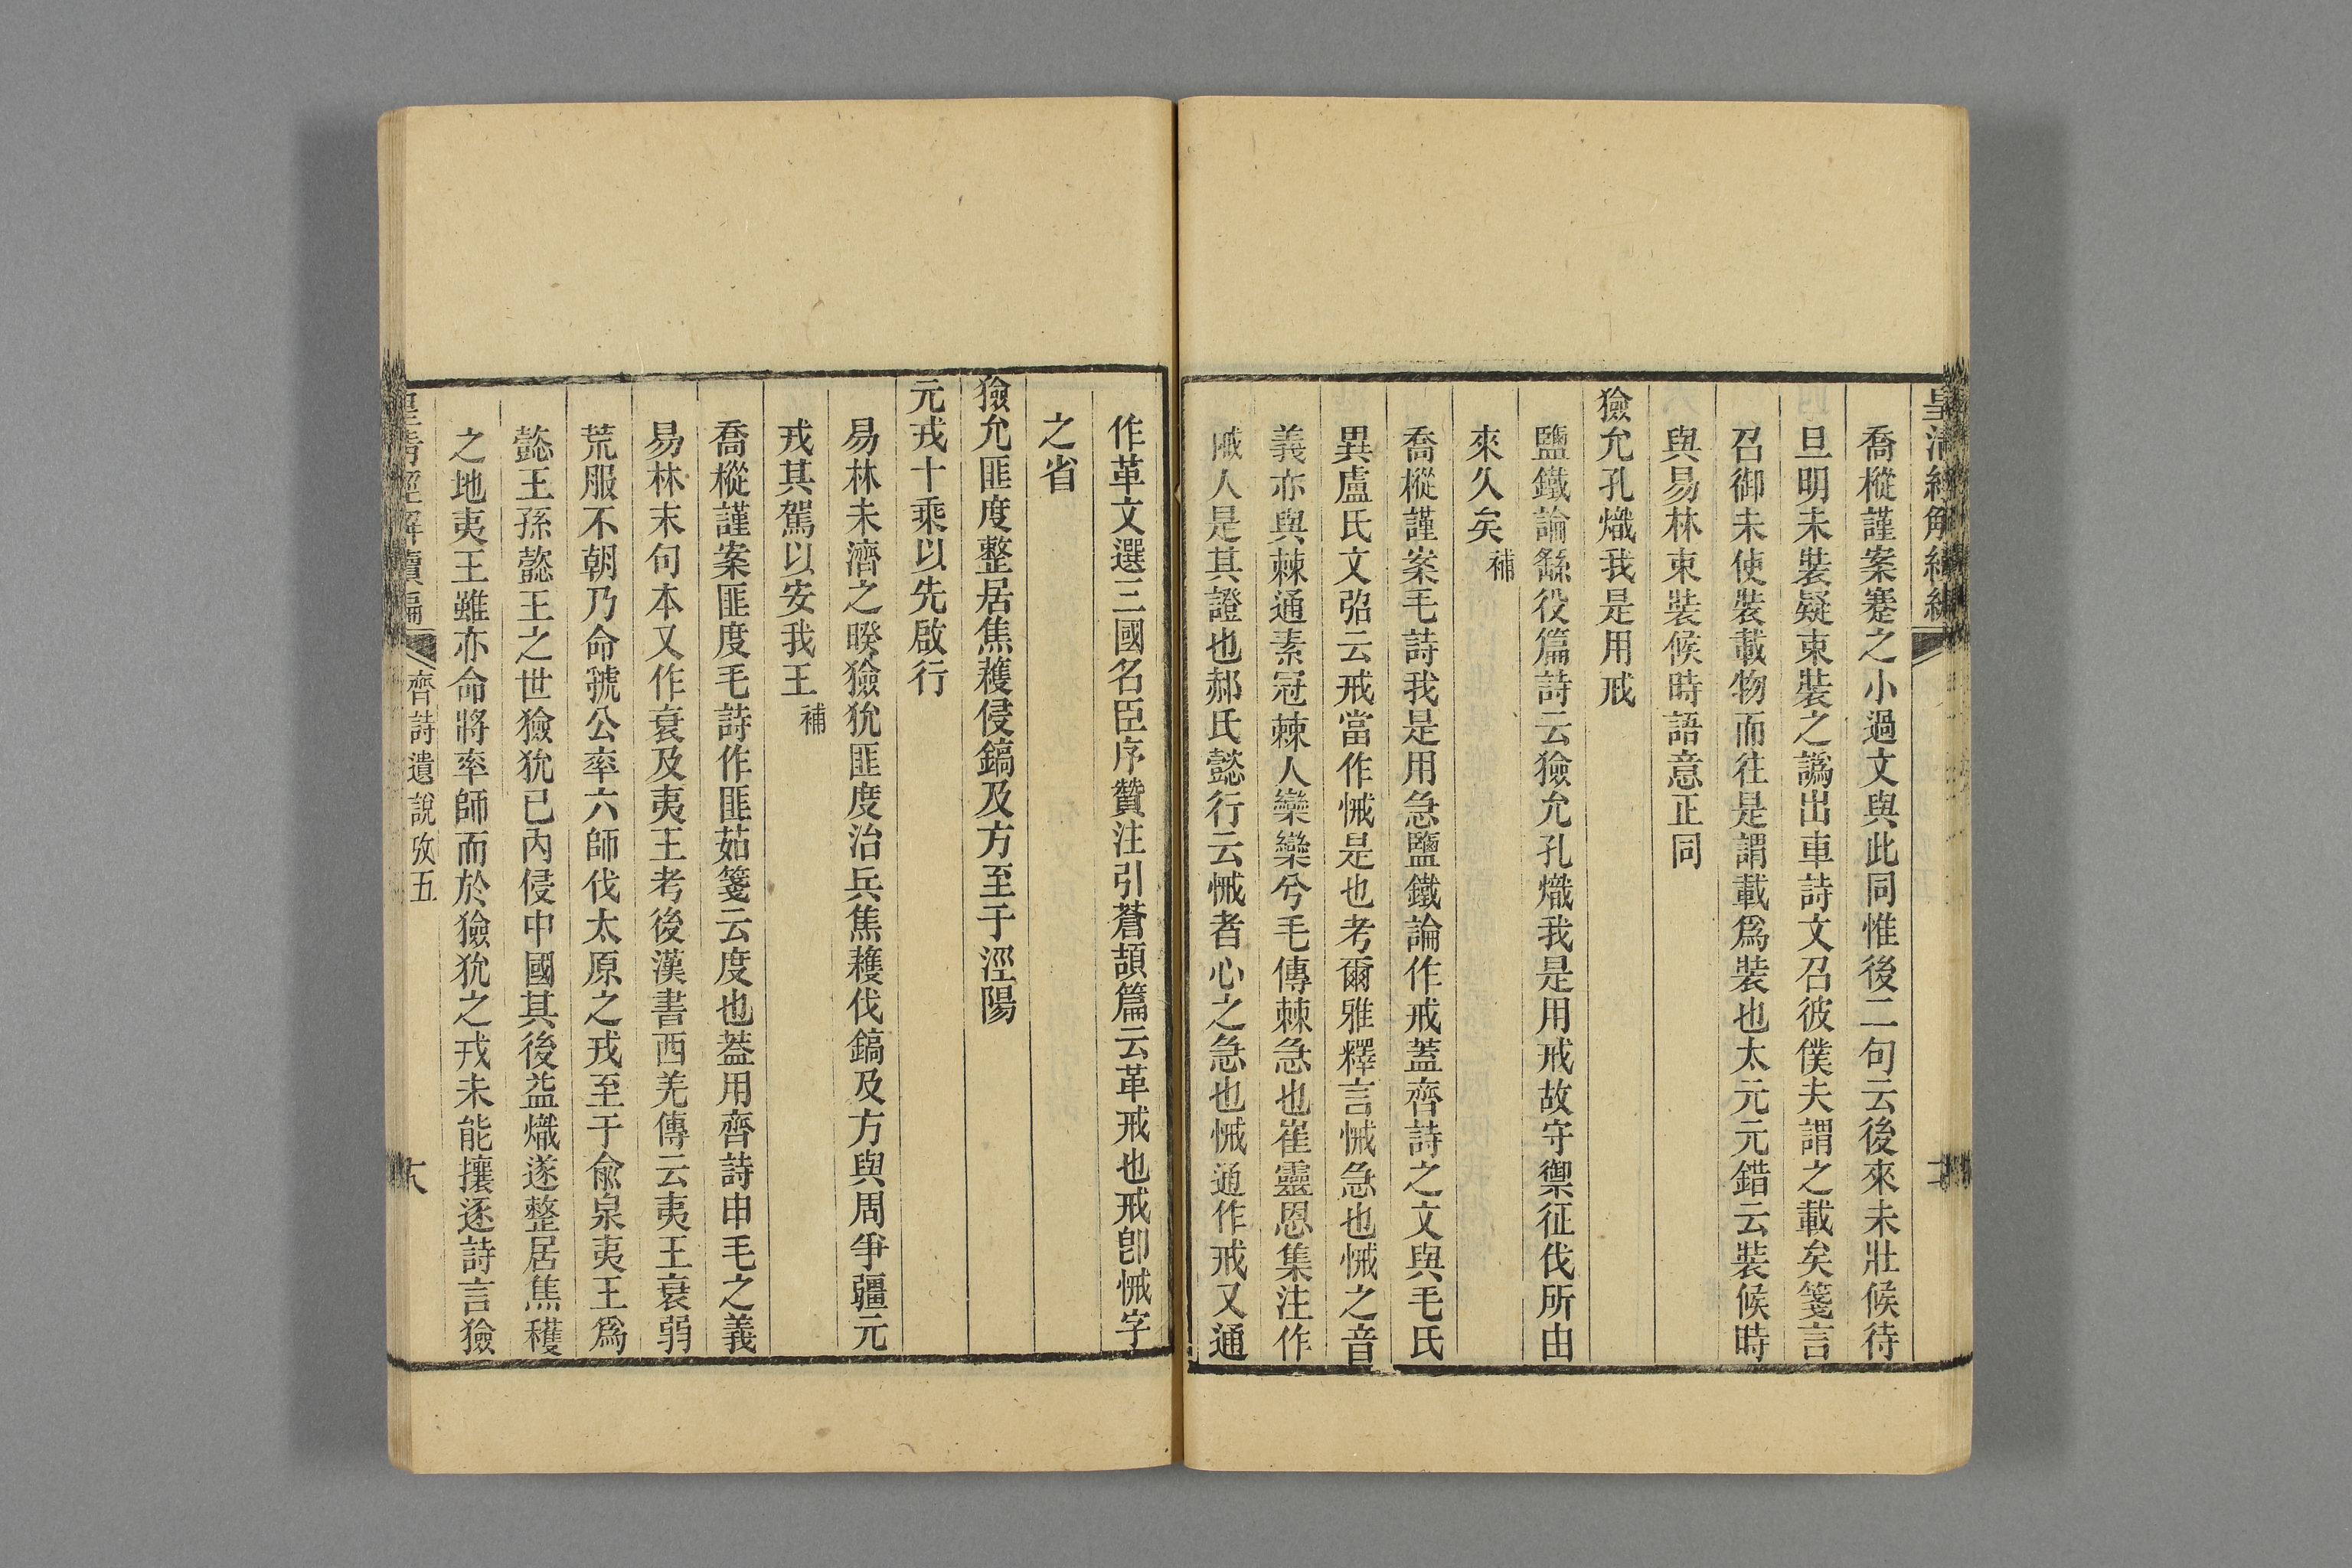 皇清經解續編
喬樅謹案蹇之小過文與此同惟後二句云後來未壯候待
旦明未裝疑束裝之譌出車詩文召彼僕夫謂之載矣箋言
召御夫使裝載物而往是謂載爲裝也太元元錯云裝候時
與易林束裝候時語意正同
獫允孔熾我是用戒
鹽鐵論繇役篇詩云獫允孔熾我是用戒故守禦征伐所由
來久矣補
喬樅謹案毛詩我是用急鹽鐵論作戒蓋齊詩之文與毛氏
異盧氏文弨云戒當作悈是也考爾雅釋言悈急也悈之音
義亦與棘通素冠棘人欒欒兮毛傳棘急也崔靈恩集注作
悈人是其證也郝氏懿行云悈者心之急也悈通作戒又通
作革文選三國名臣序贊注引蒼頡篇云革戒也戒卽悈字
之省
獫允匪度整居焦穫侵鎬及方至于涇陽
元戎十乘以先啟行
易林未濟之睽獫狁匪度治兵焦穫伐鎬及方與周爭疆元
戎其駕以安我王補
喬樅謹案匪度毛詩作匪茹箋云度也蓋用齊詩申毛之義
易林末句本又作衰及夷王考後漢書西羌傳云夷王衰弱
荒服不朝乃命虢公率六師伐太原之戎至于俞泉夷王爲
懿王孫懿王之世獫狁已內侵中國其後益熾遂整居焦穫
之地夷王雖亦命將率師而於獫狁之戎未能攘逐詩言獫
皇清經解續編 齊詩遺說攷五